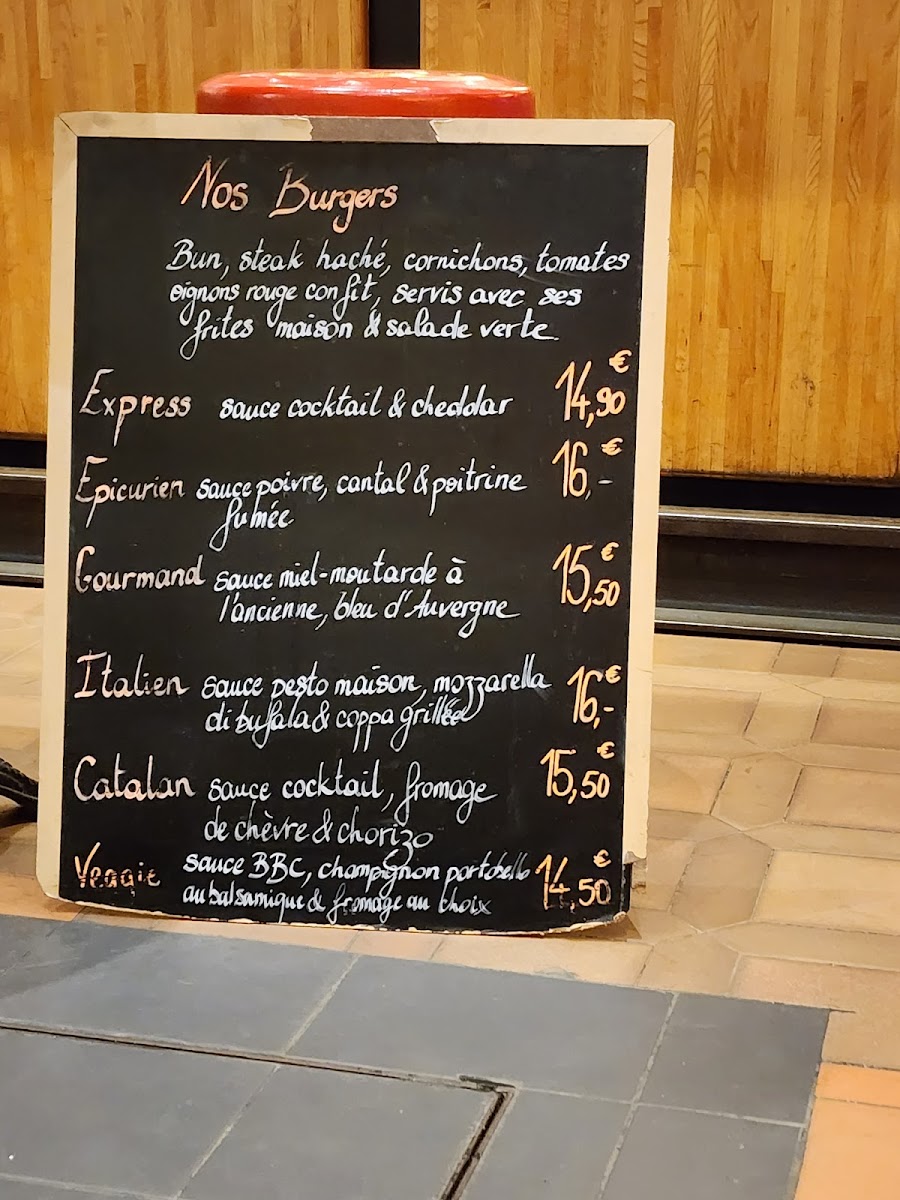 Nos Burgers
Bun, steak haché, cornichons, tomates
oignons rouge confit, servis avec ses
frites maison & salade verte.
Express sauce cocktail & cheddar 14,90€
Epicurien sauce poivre, cantal & poitrine 16,-€
fumée
Gourmand sauce miel-moutarde à 15,50€
l'ancienne, bleu d'Auvergne
Italien sauce pesto maison, mozzarella 16,-€
di bufala & coppa grillée
Catalan sauce cocktail, fromage 15,50€
de chèvre & chorizo
Veggie sauce BBC, champignon portobello 14,50€
au balsamique & fromage au choix